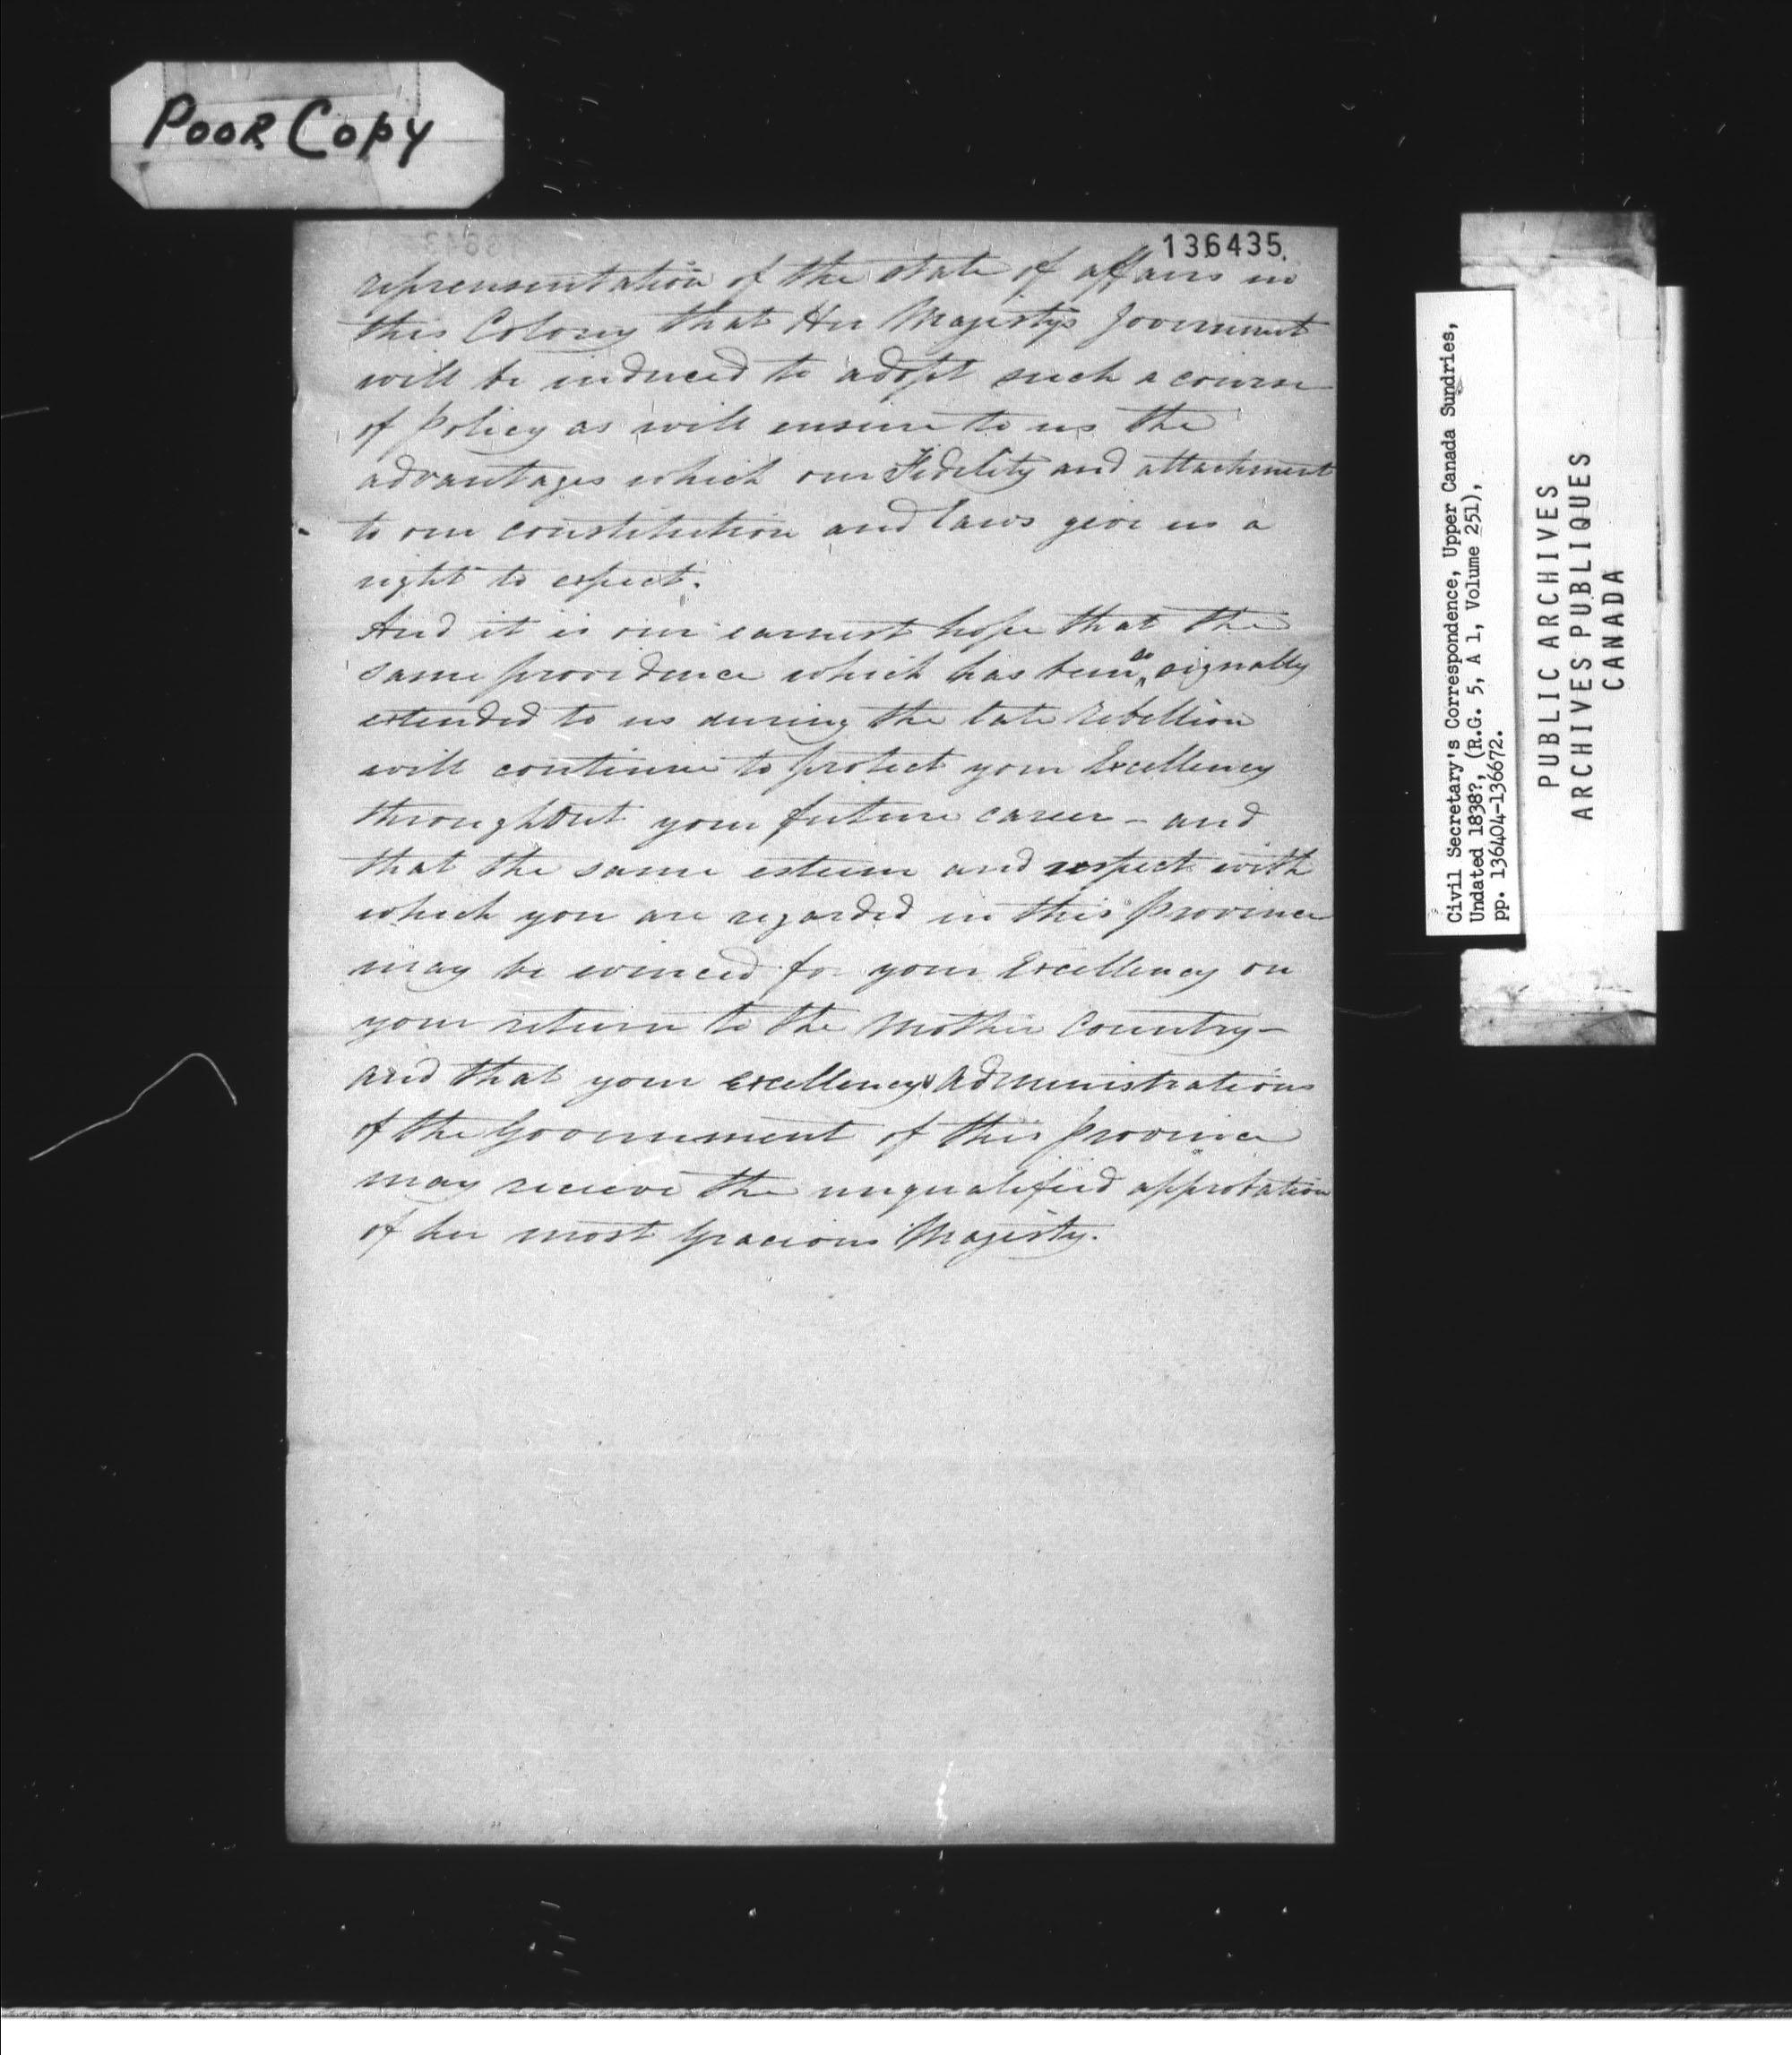 POOR COPY
136435.
representation of the state of affairs in
this Colony that Her Majestys Government
will be induced to adopt such a course
of policy as will ensure to us the
advantages which our Fidelity and attachment
to our constitution and laws give us a
right to expect.
And it is our earnest hope that the
same providence which has been so signally
extended to us during the late Rebellion
will continue to protect your Excellency
throughout your future career - and
that the same esteem and respect with
which you are regarded in this Province
may be evinced for your Excellency on
your return to the Mother Country -
and that your Excellencys Administrations
of the Government of this province
may recieve the unqualified approbation
of her most Gracious Majesty.
Civil Secretary's Correspondence, Upper Canada Sundries,
Undated 1838?, (R.G. 5, A 1, Volume 251),
pp. 136404-136672.
PUBLIC ARCHIVES
ARCHIVES PUBLIQUES
CANADA